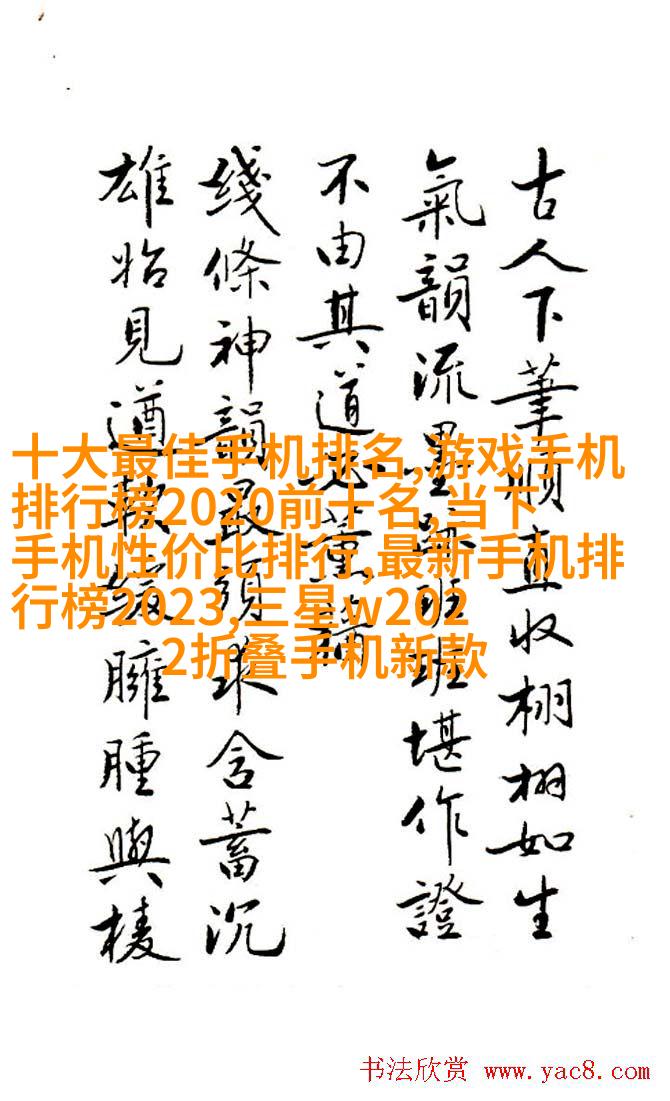 古人下筆順直收栩栩如生
氣韻流墨跡班班堪作證
不由其道
綫條神韻最須求含蓄沉
雄始見遒軟緩臃腫與棱
十大最佳手机排名,游戏手机
排行榜2020前十名,当下
手机性价比排行,最新手机排
行榜2023,三星w202
2折叠手机新款
书法欣赏 www.yac8.com